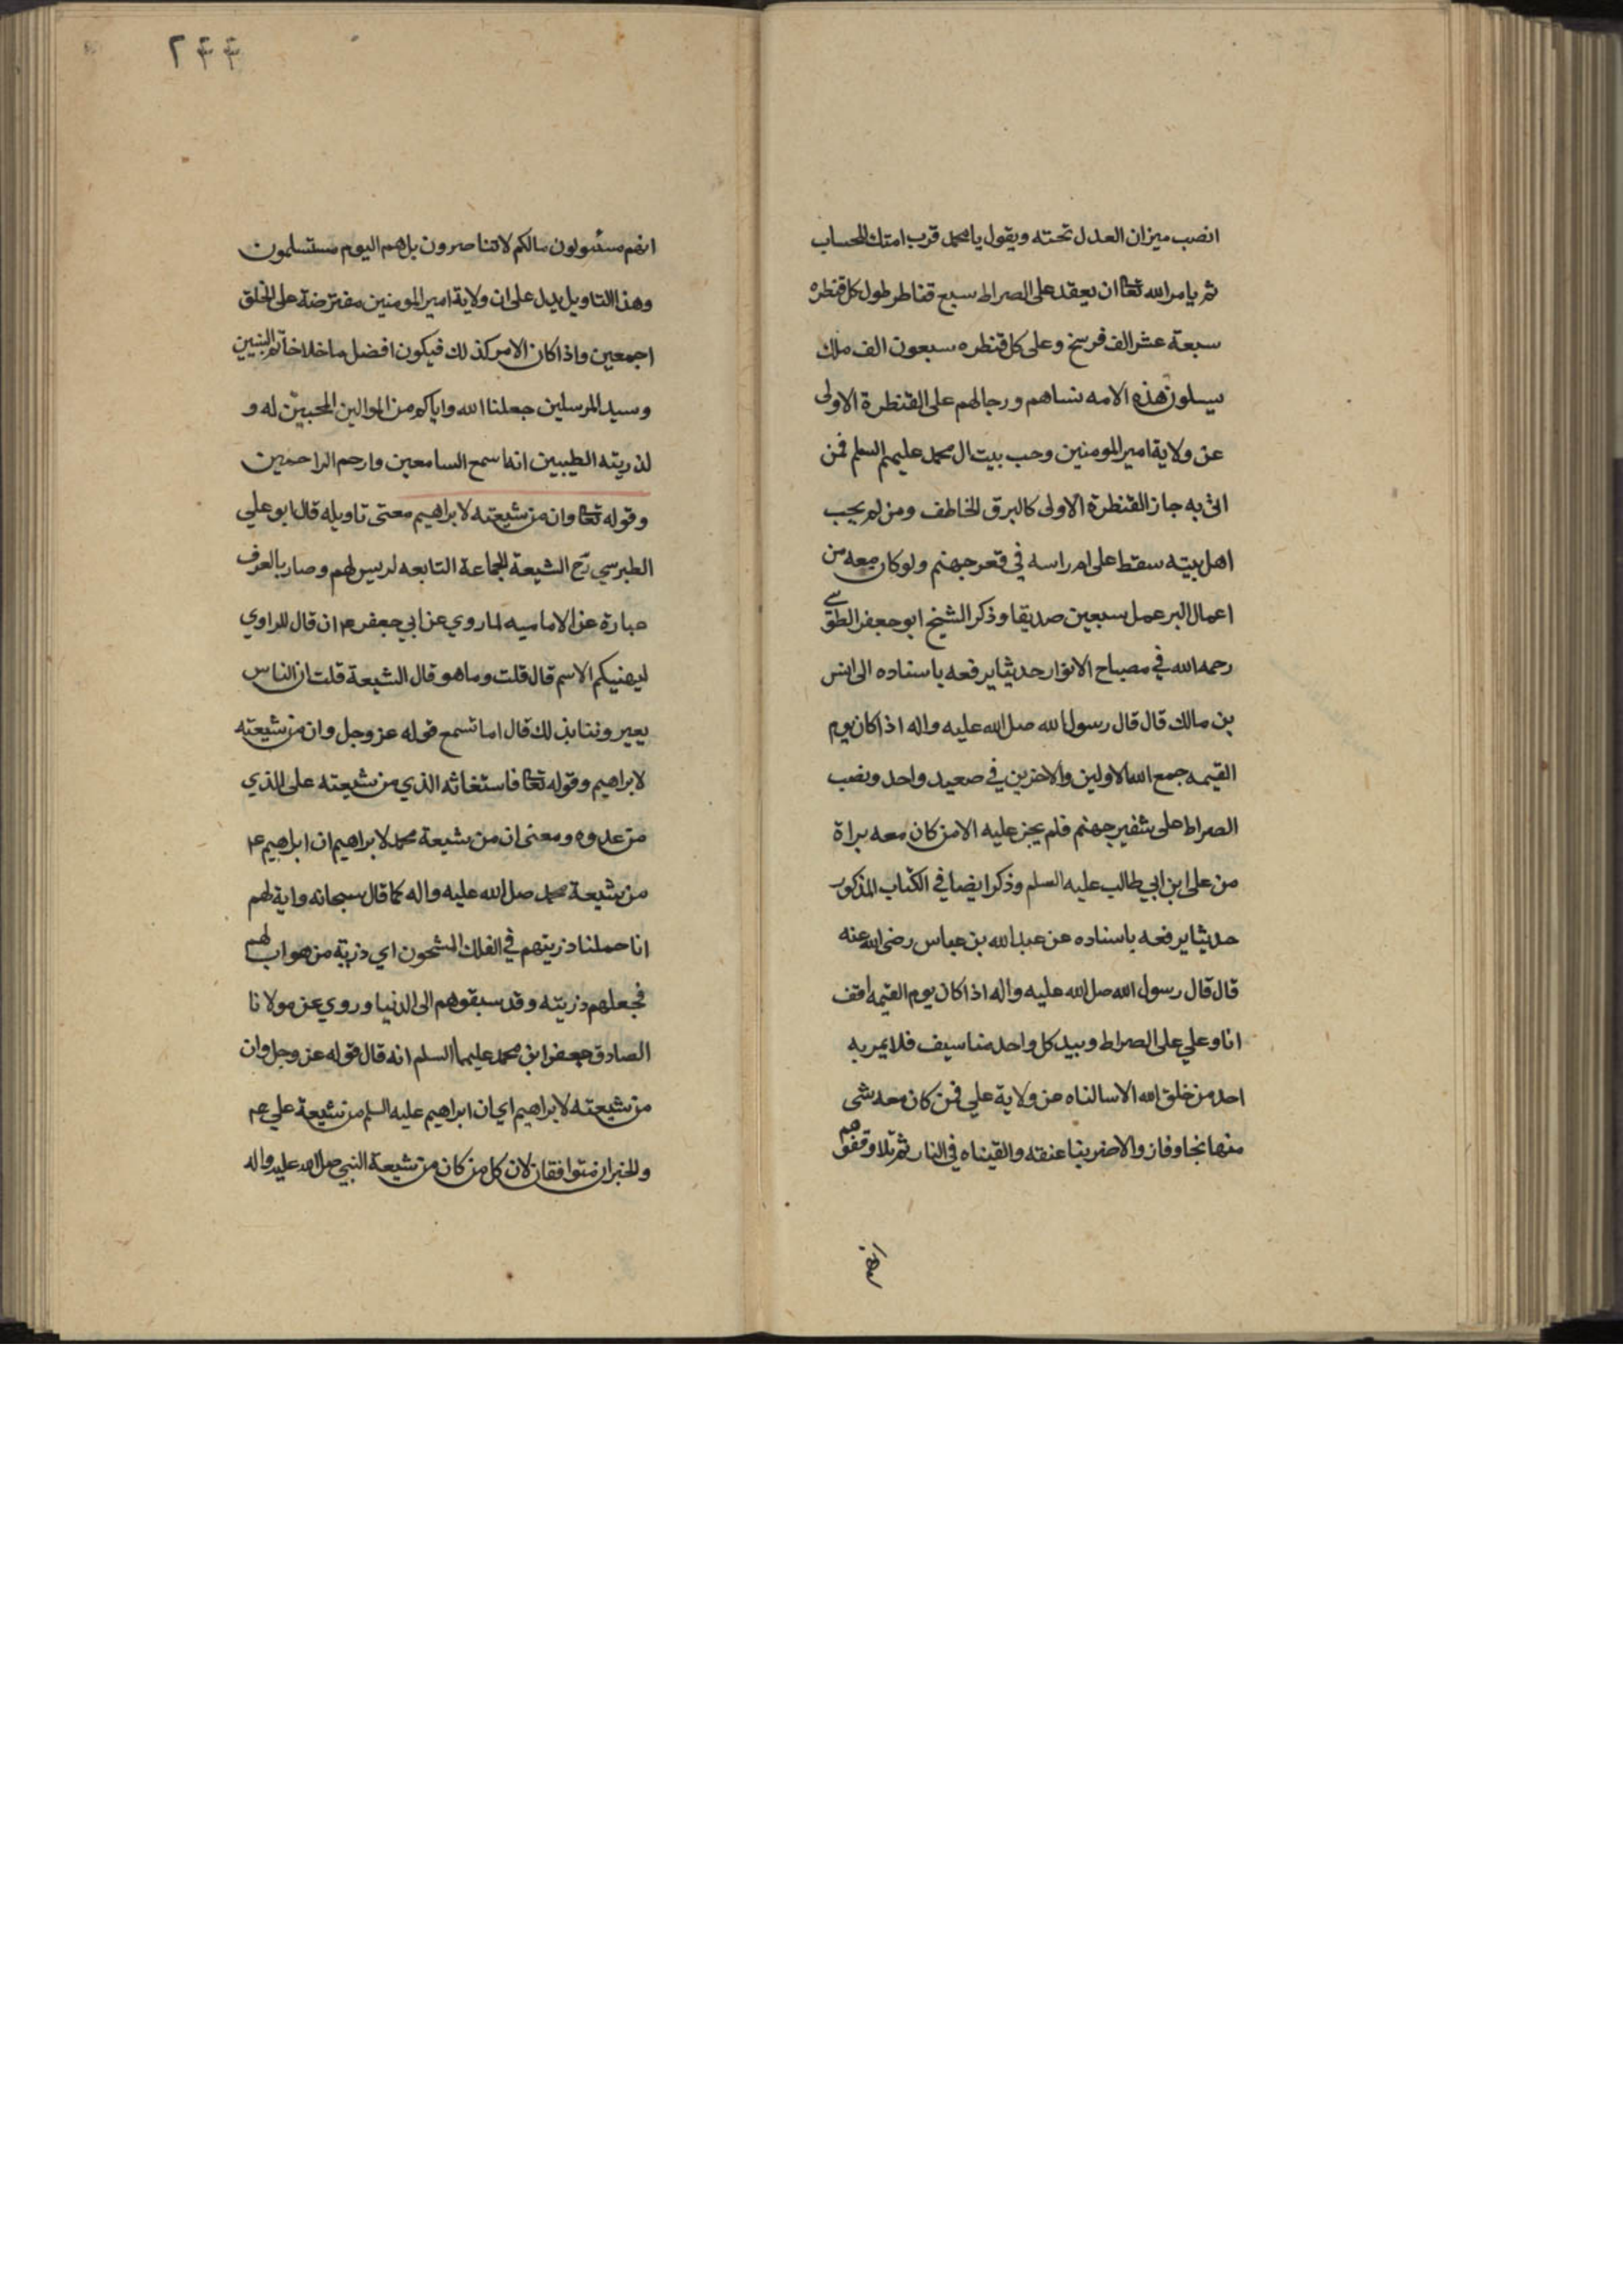 انصب ميزان العدل تحته ويقول يا محمد قرب امتك للحساب
ثم يامر الله تعا ان يعقد على الصراط سبع قناطر طول كل قنطره
سبعة عشر الف فرسخ وعلى كل قنطره سبعون الف ملك
يسلون هذه الامه نساهم ورجالهم على القنطرة الاولى
عن ولاية امير المومنين وحب بيت ال محمد عليهم السلم فمن
اتى به جاز القنطرة الاولى كالبرق الخاطف ومن لم يحب
اهل بيته سقط على ام راسه في قعر جهنم ولو كان معه من
اعمال البر عمل سبعين صديقا وذكر الشيخ ابو جعفر الطوسي
رحمه الله في مصباح الانوار حديثا يرفعه باسناده الى انس
بن مالك قال قال رسول الله صل الله عليه واله اذا كان يوم
القيمه جمع الله الاولين والاخرين في صعيد واحد ونصب
الصراط على شفير جهنم فلم يجز عليه الا من كان معه براة
من على ابن ابي طالب عليه السلم وذكر ايضا في الكتاب المذكور
حديثا يرفعه باسناده عن عبد الله بن عباس رضى الله عنه
قال قال رسول الله صل الله عليه واله اذا كان يوم القيمه اقف
انا وعلي على الصراط وبيد كل واحد منا سيف فلا يمر به
احد من خلق الله الا سالناه عن ولاية علي فمن كان معه شى
منها نجا وفاز والا ضربنا عنقه والقيناه في النار ثم تلا وقفوهم
انهم
٢٤٤
انهم مسئولون مالكم لا تناصرون بل هم اليوم مستسلمون
وهذا التاويل يدل على ان ولاية امير المومنين مفترضة على الخلق
اجمعين واذا كان الامر كذلك فيكون افضل ما خلا خاتم النبيين
وسيد المرسلين جعلنا الله واياكم من الموالين المحبين له و
لذريته الطيبين انه اسمع السامعين وارحم الراحمين
وقوله تعا وان من شيعته لابراهيم معنى تاويله قال ابو علي
الطبرسي رح الشيعة الجماعة التابعه لريس لهم وصار بالعرف
عبارة عن الاماميه لما روي عن ابي جعفر ع ان قال للراوي
ليهنيكم الاسم قال قلت وما هو قال الشيعة قلت ان الناس
يعيروننا بذلك قال اما تسمع قوله عز وجل وان من شيعته
لابراهيم وقوله تعا فاستغاثه الذي من شيعته على الذي
من عدوه ومعنى ان من شيعة محمد لابراهيم ان ابراهيم ع
من شيعة محمد صل الله عليه واله كما قال سبحانه واية لهم
انا حملنا ذريتهم في الفلك المشحون اي ذرية من هو اب لهم
فجعلهم ذريته وقد سبقوهم الى الدنيا وروي عن مولانا
الصادق جعفر ابن محمد عليهما السلم انه قال قوله عز وجل وان
من شيعته لابراهيم اي ان ابراهيم عليه السلم من شيعة علي عم
والخبران متوافقان لان كل من كان من شيعة النبي صل الله عليه واله